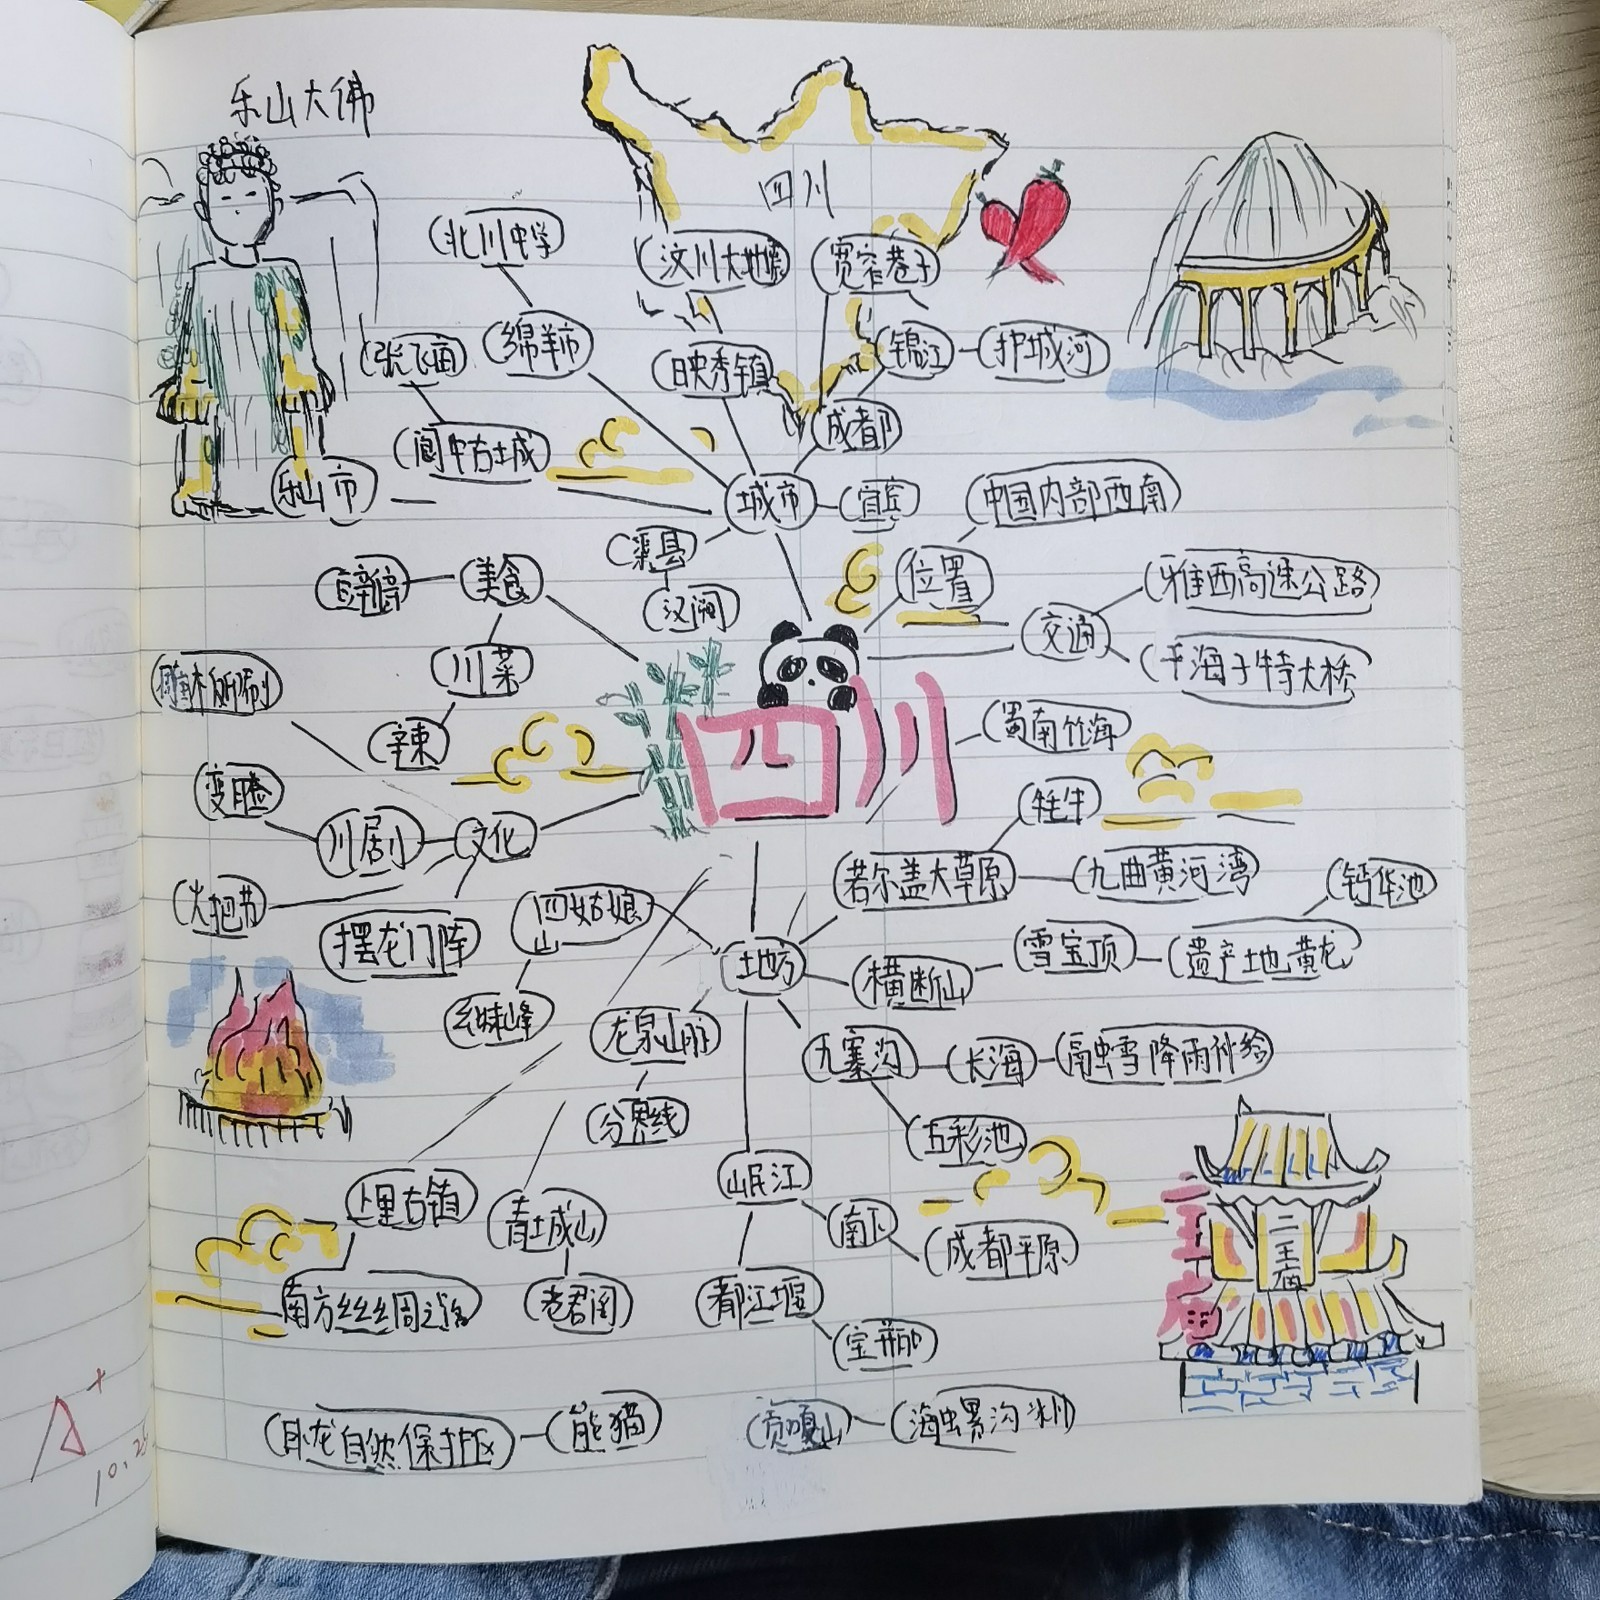 乐山大佛
四川
北川中学
汶川大地震
宽窄巷子
张飞面
绵羊市
映秀镇
锦江
护城河
成都
阆中古城
乐山市
城市
宜宾
中国内部西南
渠县
汉阙
位置
美食
交通
雅西高速公路
干海子特大桥
川菜
辣
四川
蜀南竹海
变脸
川剧
文化
牦牛
若尔盖大草原
九曲黄河湾
钙华池
火把节
摆龙门阵
四姑娘山
地方
横断山
雪宝顶
遗产地黄龙
幺妹峰
龙泉山脉
九寨沟
长海
分界线
五彩池
上里古镇
青城山
岷江
南下
成都平原
老君阁
都江堰
宝瓶口
二王庙
二王庙
卧龙自然保护区
熊猫
贡嘎山
A+
10.25